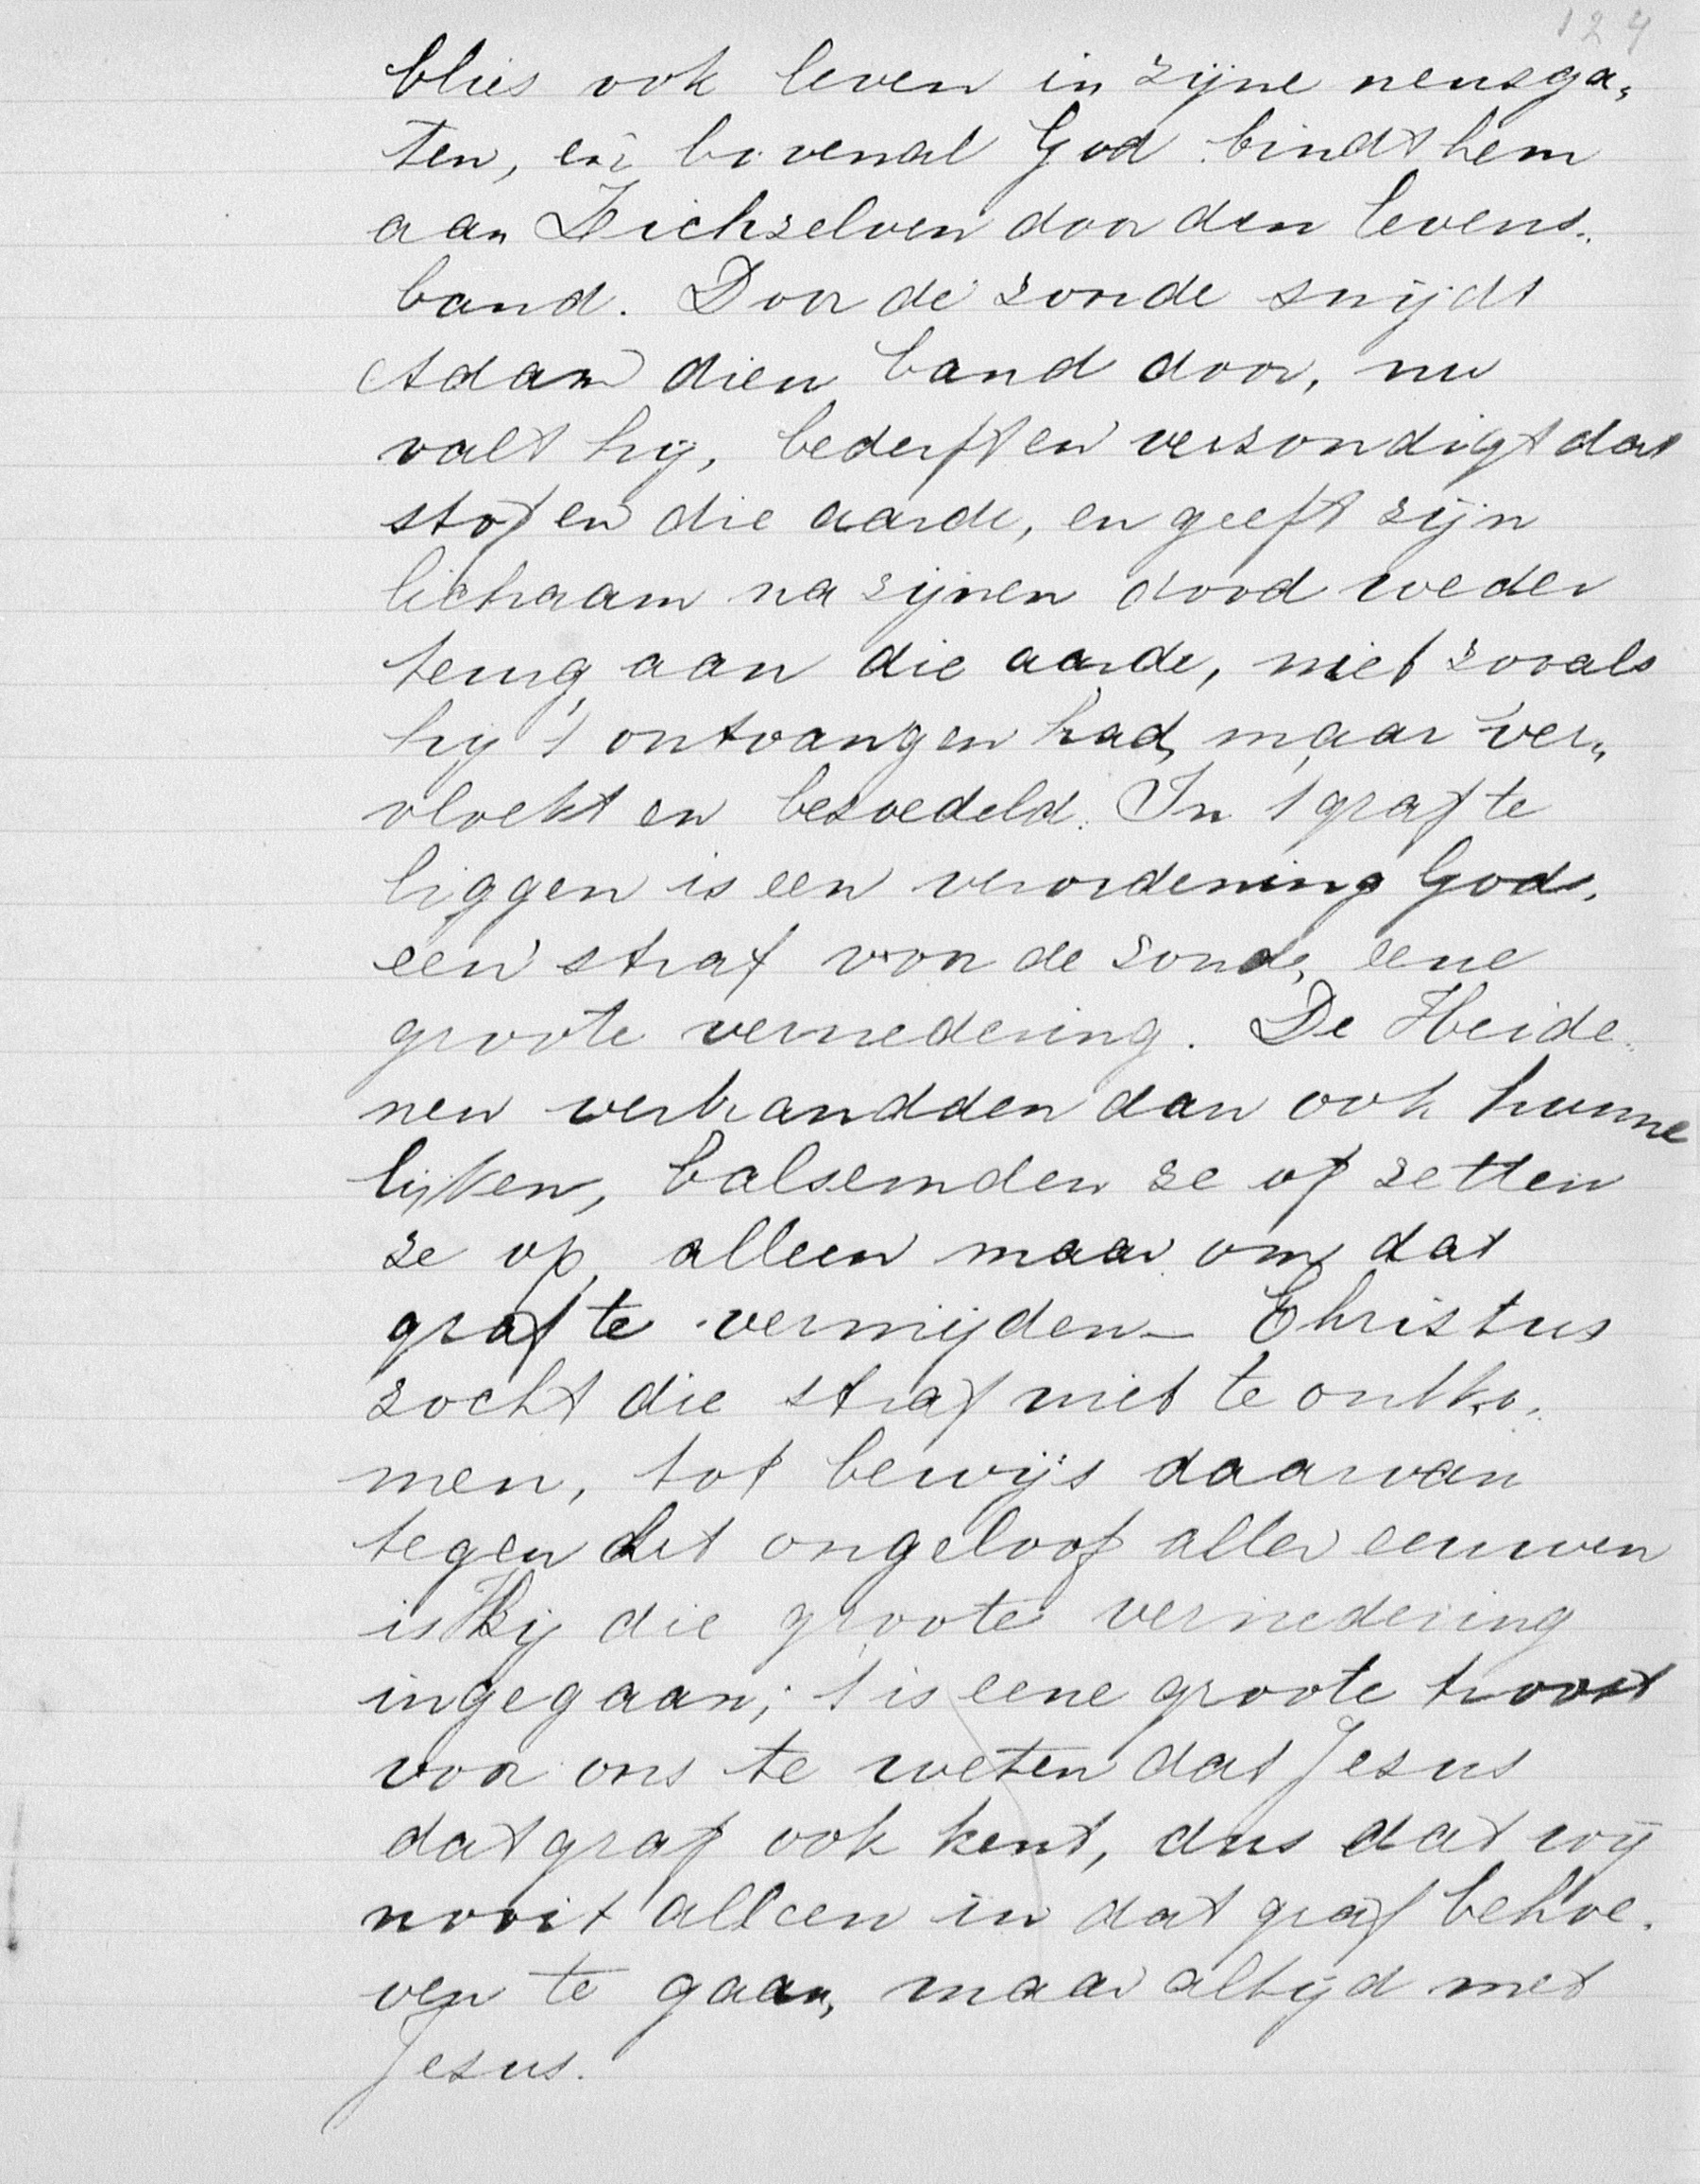 124
blies ook leven in zijne neusga„
ten, en bovenal God bindt hem
aan Zichzelven door den levens„
band. Door de zonde snijdt
Adam dien band door, nu
valt hij, bederft en verzondigt dat
stof en die aarde, en geeft zijn
lichaam na zijnen dood weder
terug aan die aarde, niet zooals
hij 't ontvangen had, maar ver„
vloekt en bezoedeld. In 't graf te
liggen is een verordening Gods,
een straf voor de zonde, eene
groote vernedering. De Heide„
nen verbrandden dan ook hunne
lijken, balsemden ze of zetten
ze op, alleen maar om dat
graf te vermijden – Christus
zocht die straf niet te ontko„
men, tot bewijs daarvan
tegen het ongeloof aller eeuwen
is Hij die groote vernedering
ingegaan; 't is eene groote troost
voor ons te weten dat Jezus
dat graf ook kent, dus dat wij
nooit alleen in dat graf behoe„
ven te gaan, maar altijd met
Jezus.